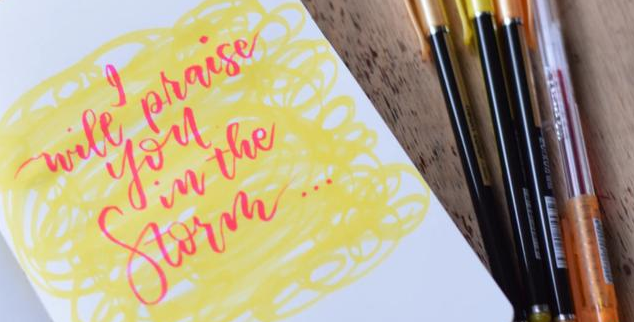 I
will praise
you
in the
Storm ...